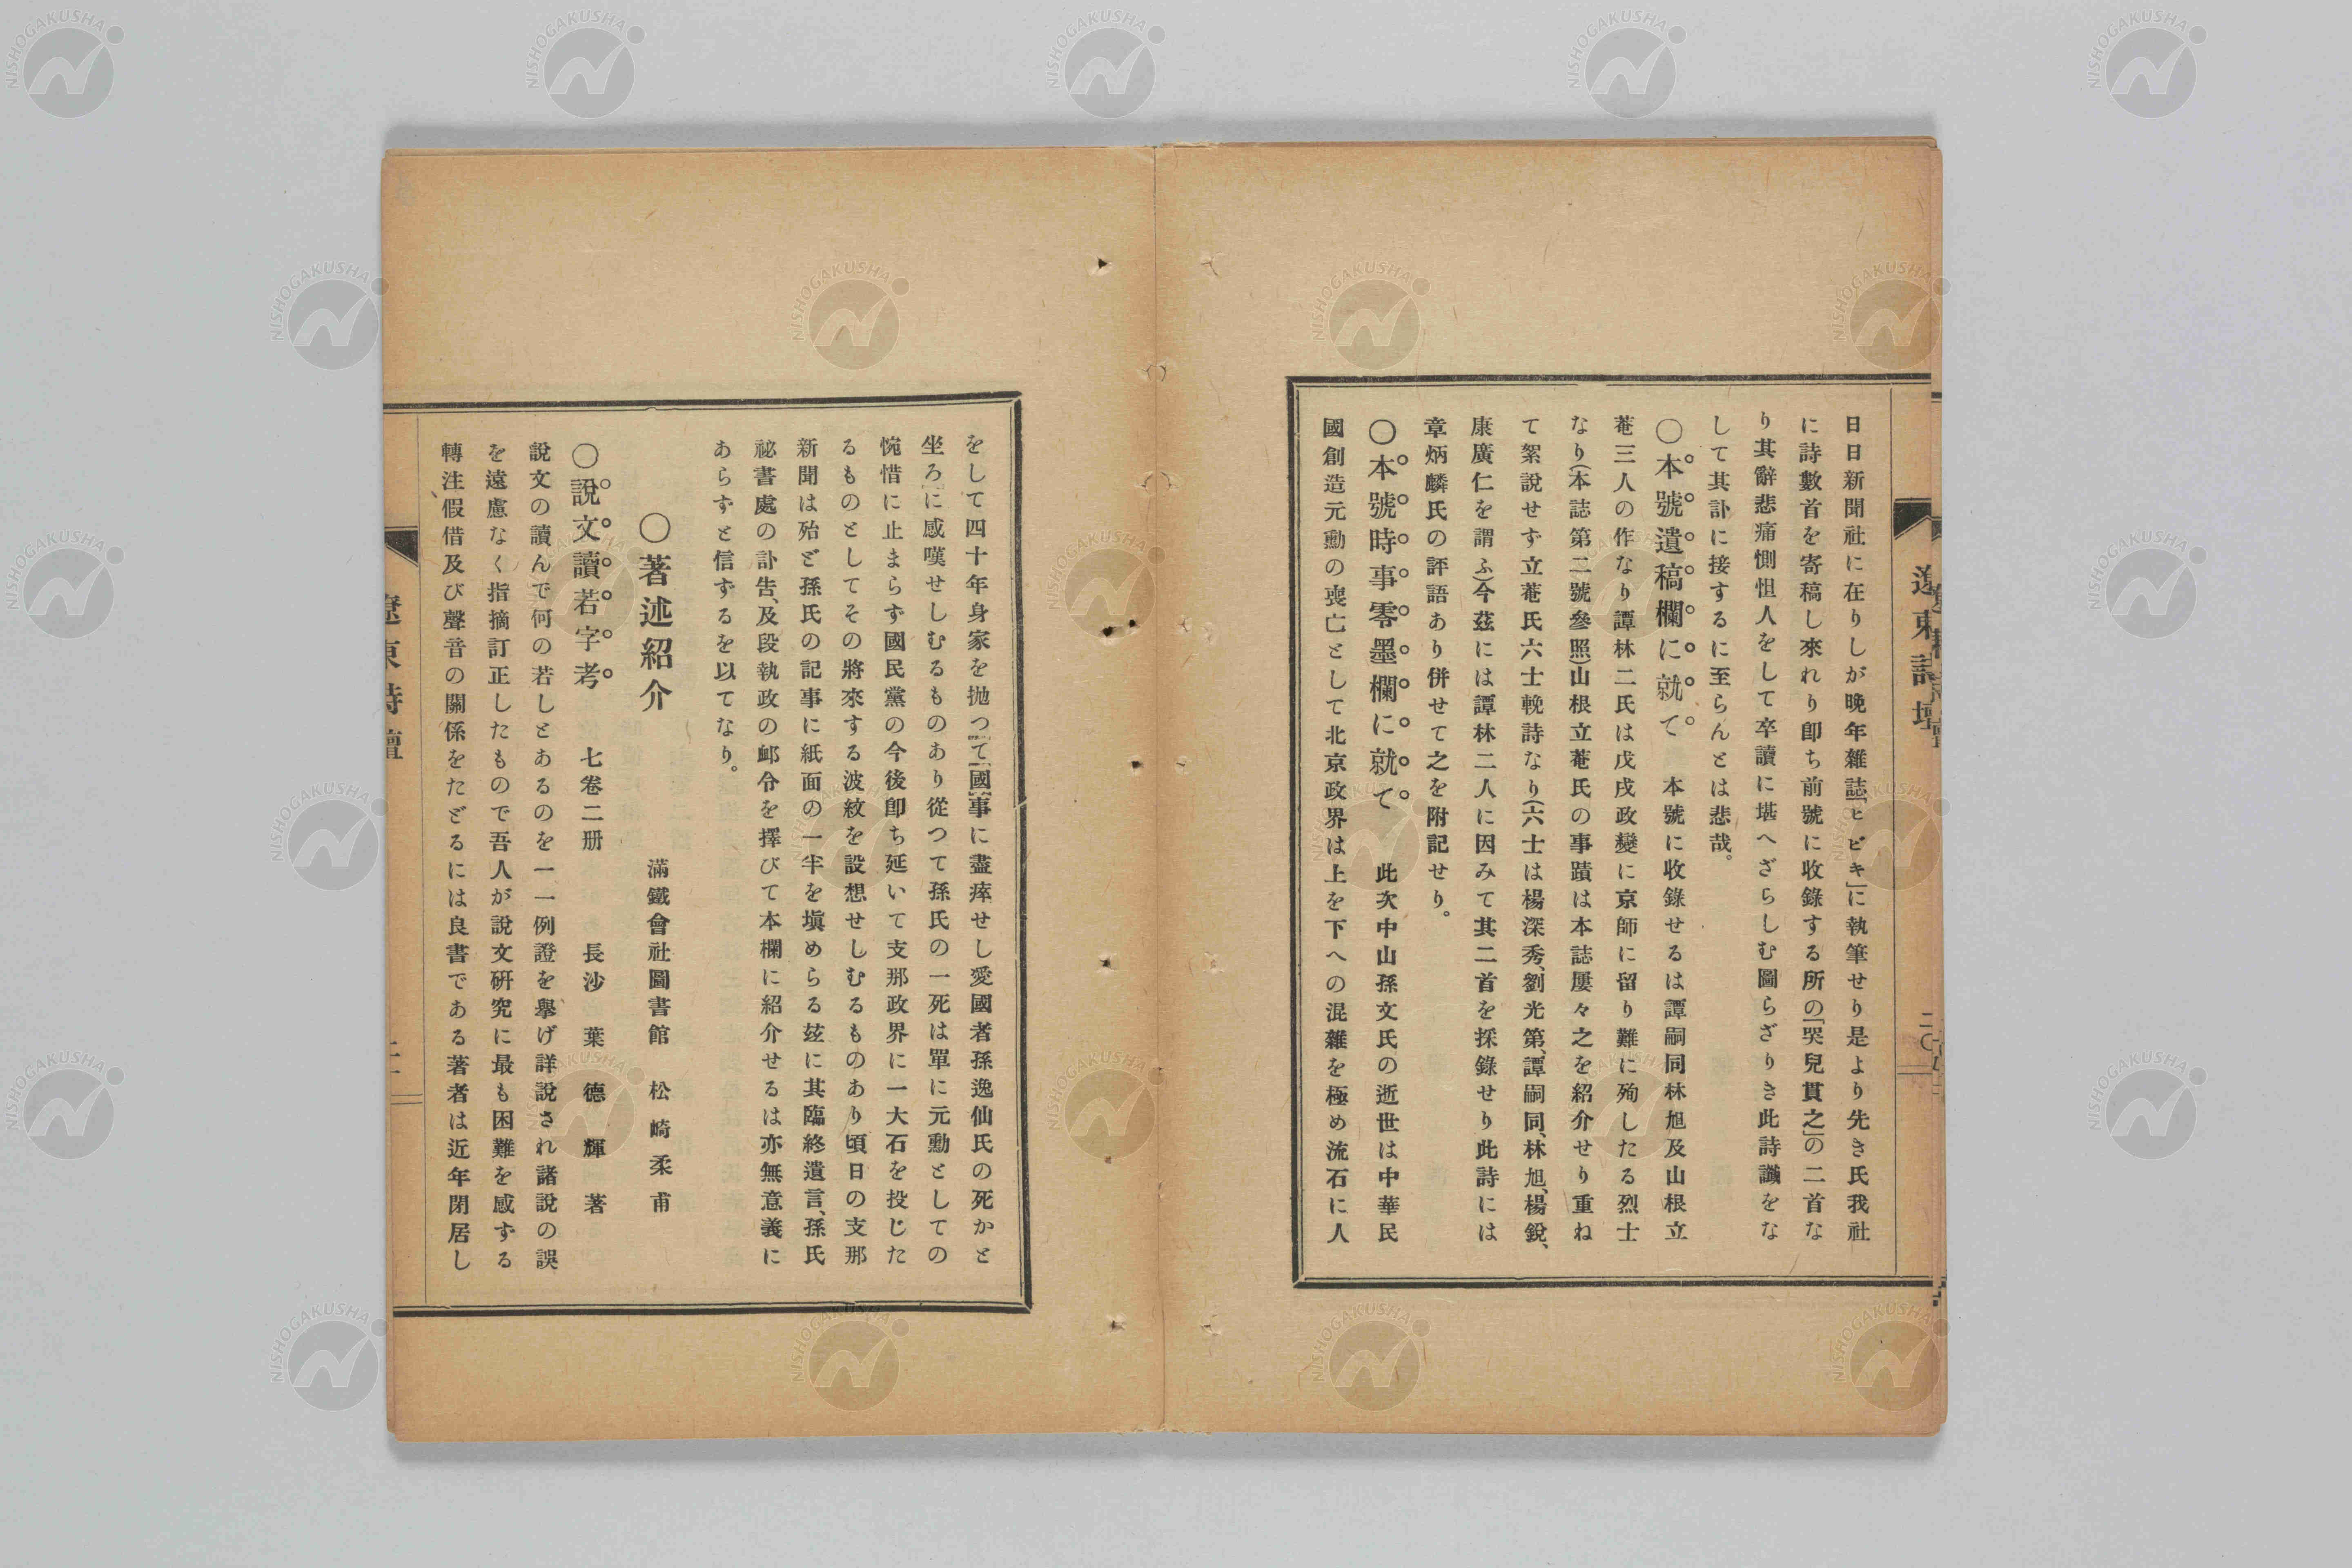 遼東詩壇
二〇
日日新聞社に在りしが晩年雜誌「ヒビキ」に執筆せり是より先き氏我社
に詩數首を寄稿し來れり卽ち前號に收錄する所の「哭兒貫之」の二首な
り其辭悲痛惻怛人をして卒讀に堪へざらしむ圖らざりき此詩讖をな
して其訃に接するに至らんとは悲哉。
〇本號遺稿欄に就て 本號に收錄せるは譚嗣同林旭及山根立
菴三人の作なり譚林二氏は戊戌政變に京師に留り難に殉したる烈士
なり(本誌第二號參照)山根立菴氏の事蹟は本誌屢々之を紹介せり重ね
て絮說せず立菴氏六士輓詩なり(六士は楊深秀、劉光第、譚嗣同、林旭、楊銳、
康廣仁を謂ふ)今茲には譚林二人に因みて其二首を採錄せり此詩には
章炳麟氏の評語あり併せて之を附記せり。
〇本號時事零墨欄に就て 此次中山孫文氏の逝世は中華民
國創造元勳の喪亡として北京政界は上を下への混雜を極め流石に人
をして四十年身家を抛つて國事に盡瘁せし愛國者孫逸仙氏の死かと
坐ろに感嘆せしむるものあり從つて孫氏の一死は單に元勳としての
惋惜に止まらず國民黨の今後卽ち延いて支那政界に一大石を投じた
るものとしてその將來する波紋を設想せしむるものあり頃日の支那
新聞は殆ど孫氏の記事に紙面の一半を塡めらる玆に其臨終遺言、孫氏
祕書處の訃告、及段執政の卹令を擇びて本欄に紹介せるは亦無意義に
あらずと信ずるを以てなり。
〇著述紹介 滿鐵會社圖書館 松崎柔甫
〇說文讀若字考 七卷二册 長沙 葉德輝著
說文の讀んで何の若しとあるのを一一例證を擧げ詳說され諸說の誤
を遠慮なく指摘訂正したもので吾人が說文硏究に最も困難を感ずる
轉注、假借及び聲音の關係をたどるには良書である著者は近年閉居し
遼東詩壇
NISHOGAKUSHA